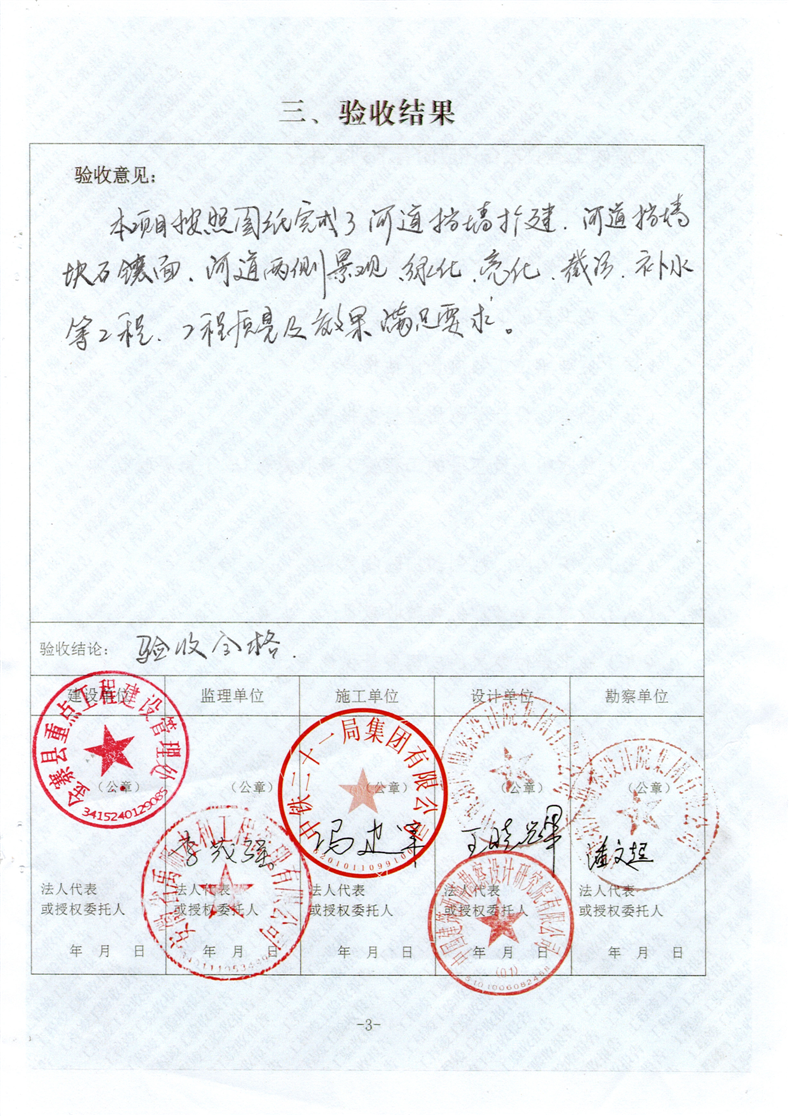 三、验收结果
验收意见：
本项目按照图纸完成了河道挡墙扩建、河道挡墙
块石镶面、河道两侧景观、绿化、亮化、截污、补水
等工程、工程质量及效果满足要求。
验收结论： 验收合格.
建设单位 监理单位 施工单位 设计单位 勘察单位
（公章） （公章） （公章） （公章） （公章）
金寨县重点工程建设管理处
3415240129085
中铁二十一局集团有限公司
李茂强 冯建军 王晓
潘文超
法人代表 法人代表 法人代表 法人代表 法人代表
或授权委托人 或授权委托人 或授权委托人 或授权委托人 或授权委托人
年 月 日 年 月 日 年 月 日 年 月 日 年 月 日
(01)
-3-